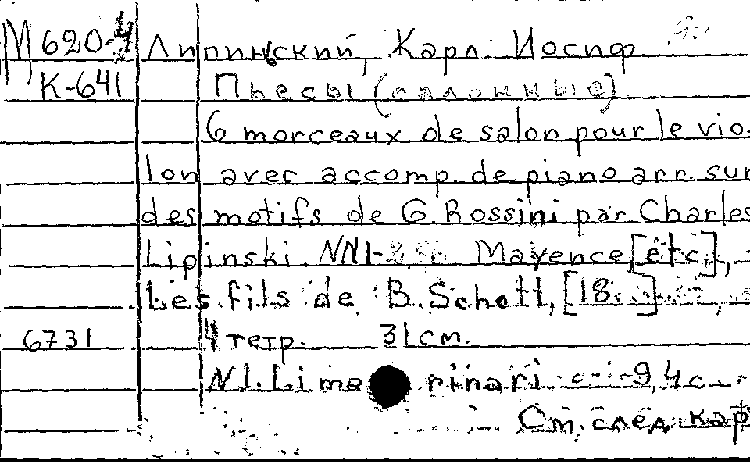 М 620-4 Липинский, Карл Иосиф
К-641 Пьесы (салонные)
6 morceaux de salon pour le vio-
lon avec accomp. de piano arr. sur
des motifs de G. Rossini par Charles
Lipinski. NN1- Mayence [etc.],
Les fils de B. Schott, [18. ]
6731 4 тетр. 31 см.
N1. Li ma rinari 9,4 с.
См. след. кар